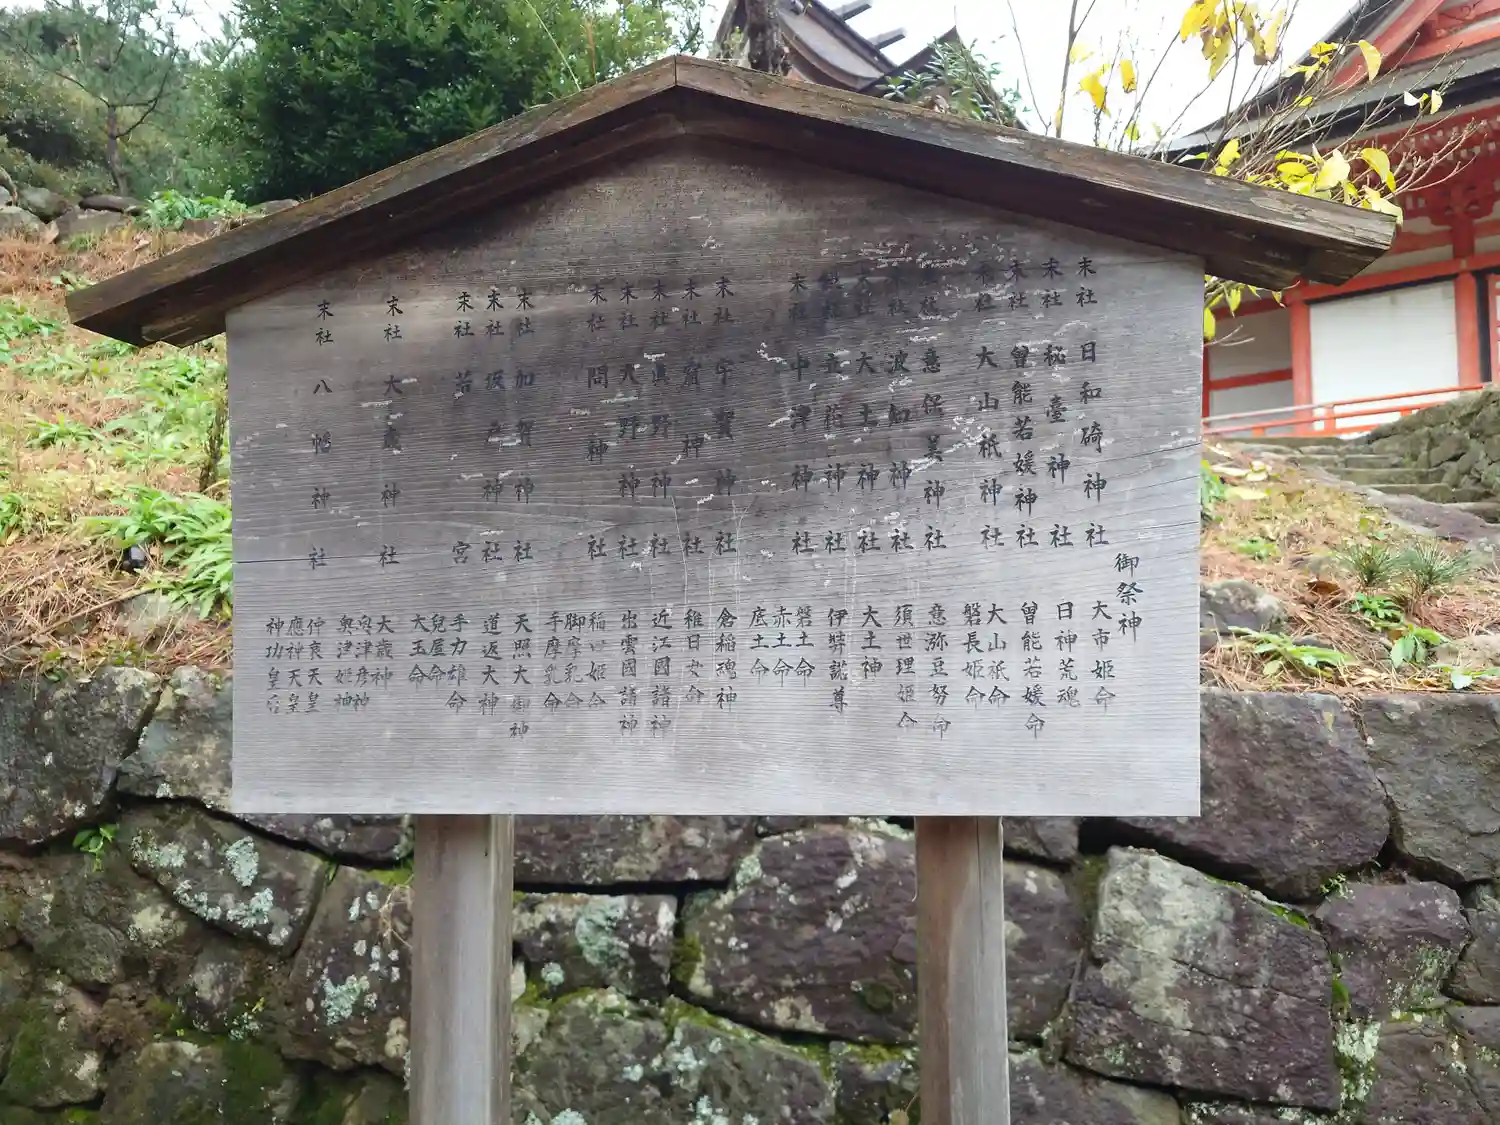 御祭神
末社 日和碕神社 大市姫命
末社 秘臺神社 日神荒魂
末社 曽能若媛神社 曽能若媛命
末社 大山祇神社 大山祇命
磐長姫命
末社 意保美神社 意弥豆努命
末社 波知神社 須世理姫命
末社 大土神社 大土神
末社 立花神社 伊弉諾尊
末社 中津神社 磐土命
赤土命
底土命
末社 宇賀神社 倉稲魂神
末社 神社 稚日女命
末社 眞野神社 近江國諸神
末社 大野神社 出雲國諸神
末社 問神社 稲田姫命
脚摩乳命
手摩乳命
末社 加賀神社 天照大御神
末社 坂戸神社 道返大神
末社 若宮 手力雄命
兒屋命
大玉命
末社 大歳神社 大歳神
奥津彦神
奥津姫神
末社 八幡神社 仲哀天皇
應神天皇
神功皇后